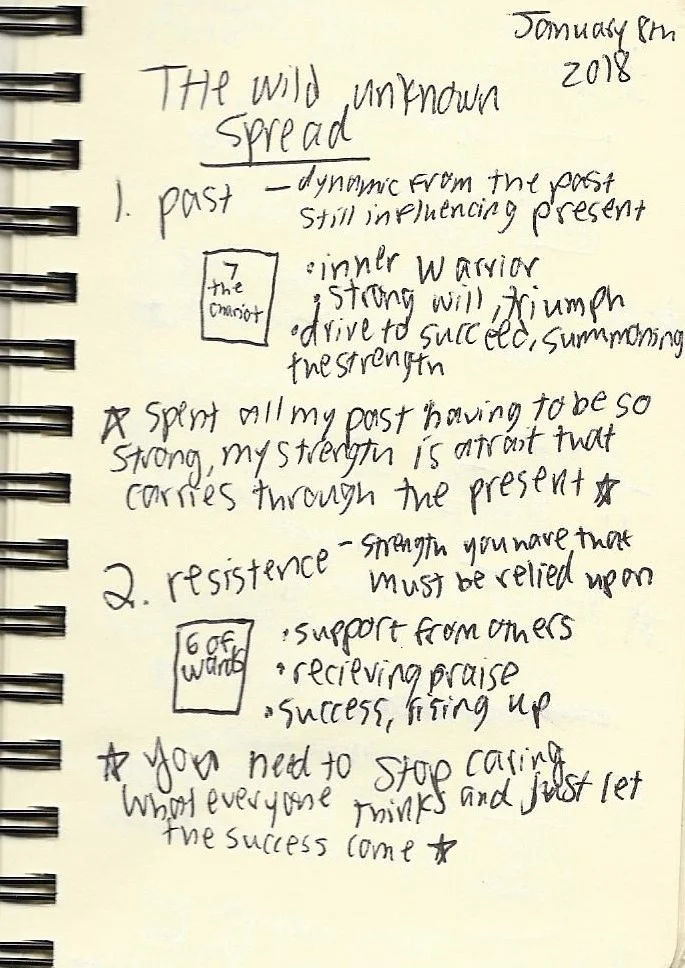 January 8th
2018
THE wild unknown
Spread
1. past - dynamic from the past
still influencing present
7
the
chariot
• inner warrior
• strong will, triumph
• drive to succeed, summoning
the strength
☆ spent all my past having to be so
strong, my strength is a trait that
carries through the present ☆
2. resistence - strength you have that
must be relied upon
6 of
wands
• support from others
• recieving praise
• success, rising up
☆ you need to stop caring
what everyone thinks and just let
the success come ☆